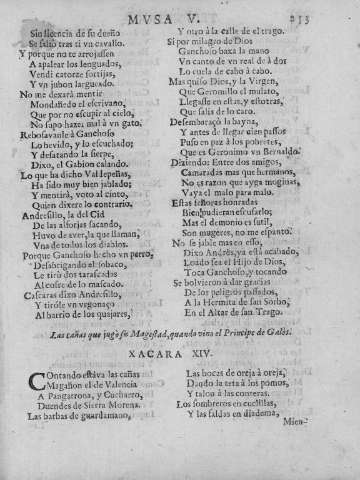 MVSA V.
213
Sin licencia de su dueño
Se salió tras ti vn cavallo.
Y porque no te arrojassen
A apalear los lenguados,
Vendi catorze sortijas,
Y vn jubon larguеado.
No me dexará mentir
Mondañedo el escrivano,
Que por no escupir al cielo,
No sapo hazer mal à vn gato.
Rebosavanle à Ganchoso
Lo hevido, y lo escuchado;
Y desatando la sierpe,
Dixo, el Gabion calando.
Lo que ha dicho Vallepeñas,
Ha sido muy bien jablado;
Y mentirà, voto al cinto,
Quien dixere lo contrario.
Andresillo, la del Cid
De las alforjas sacando,
Huvo de aver, la que llaman,
Vna de todos los diablos.
Porque Ganchoso hecho vn perro,
Desabrigando el sobaco,
Le tirò dos tarascadas
Al cofre de lo mascado.
Cascaras dixo Andresillo,
Y tiròle vn vrgonaço
Al barrio de los quajares,
Y otro à la calle de el trago.
Si por milagro de Dios
Ganchoso baxa la mano
Vn canto de vn real de à dos
Lo cuela de cabo à cabo.
Mas quiso Dios, y la Virgen,
Que Geromillo el mulato,
Llegasse en estas, y estotras,
Que salìs de lo caro.
Desembaraçò la bayna,
Y antes de llegar cien passos
Puso en paz à los pobretes,
Que es Geronimo vn Bernaldo.
Diziendo: Entre dos amigos,
Camaradas mas que hermanos,
No es razon que ayga moginas,
Vaya el malo para malo.
Estas señoras honradas
Bien pudieran escusarlo;
Mas el demonio es sutil,
Son mugeres, no me espanto.
No se jable mas en esso,
Dixo Andrès, ya està acabado,
Loado sea el Hijo de Dios,
Toca Ganchoso, y tocando
Se bolvieron à dar gracias
De los peligros passados,
A la Hermita de san Sorbo,
En el Altar de san Trago.
Las cañas que jugò su Magestad, quando vino el Principe de Galès.
XACARA XIV.
COntando estava las cañas
Magañon el de Valencia
A Pangarrona, y Cucharro,
Duendes de Sierra Morena.
Las barbas de guardamano,
Las bocas de oreja à oreja,
Dando la teta à los pomos,
Y talon à las conteras.
Los sombreros en cuclillas,
Y las faldas en diadema,
Mien-